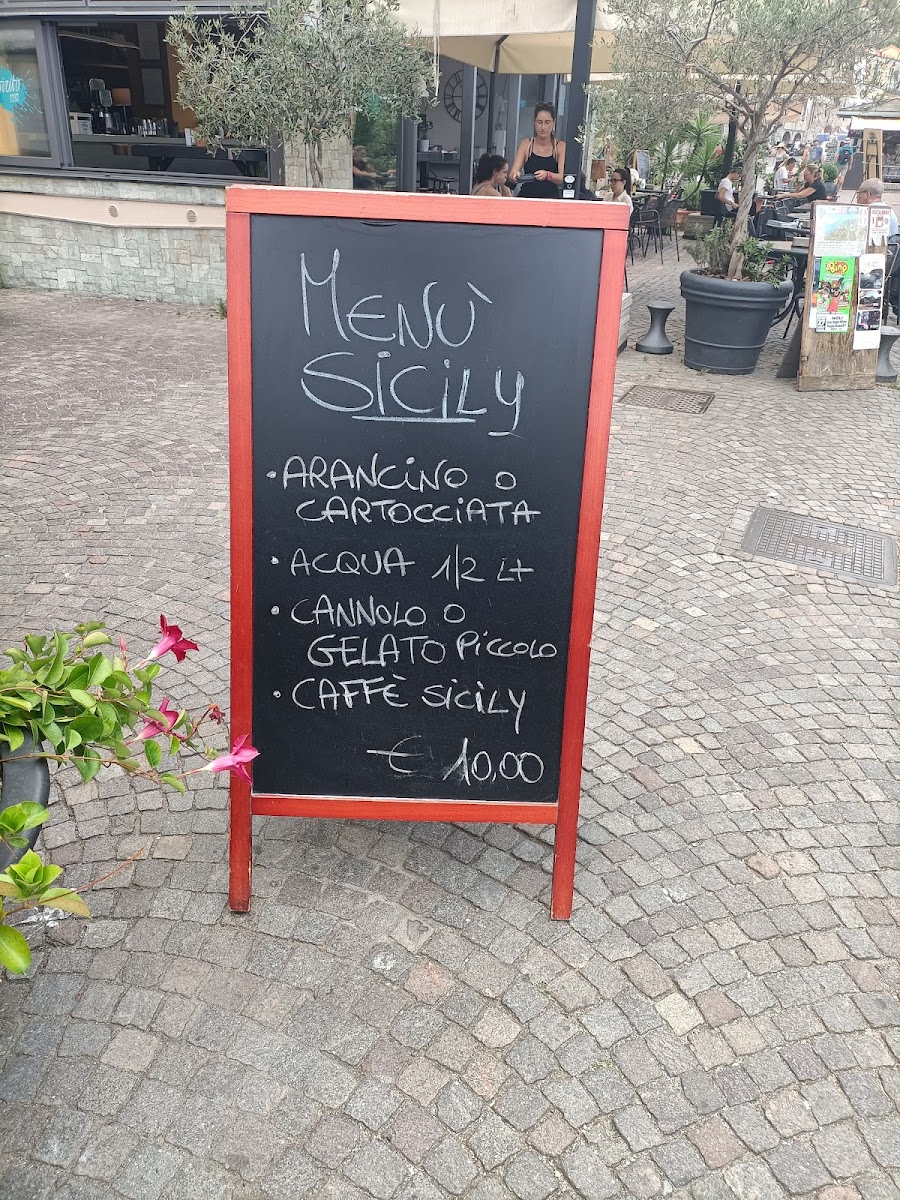 MENÙ
SICILY
• ARANCINO O
CARTOCCIATA
• ACQUA 1/2 Lt
• CANNOLO O
GELATO PICCOLO
• CAFFÈ SICILY
€ 10,00
Bing